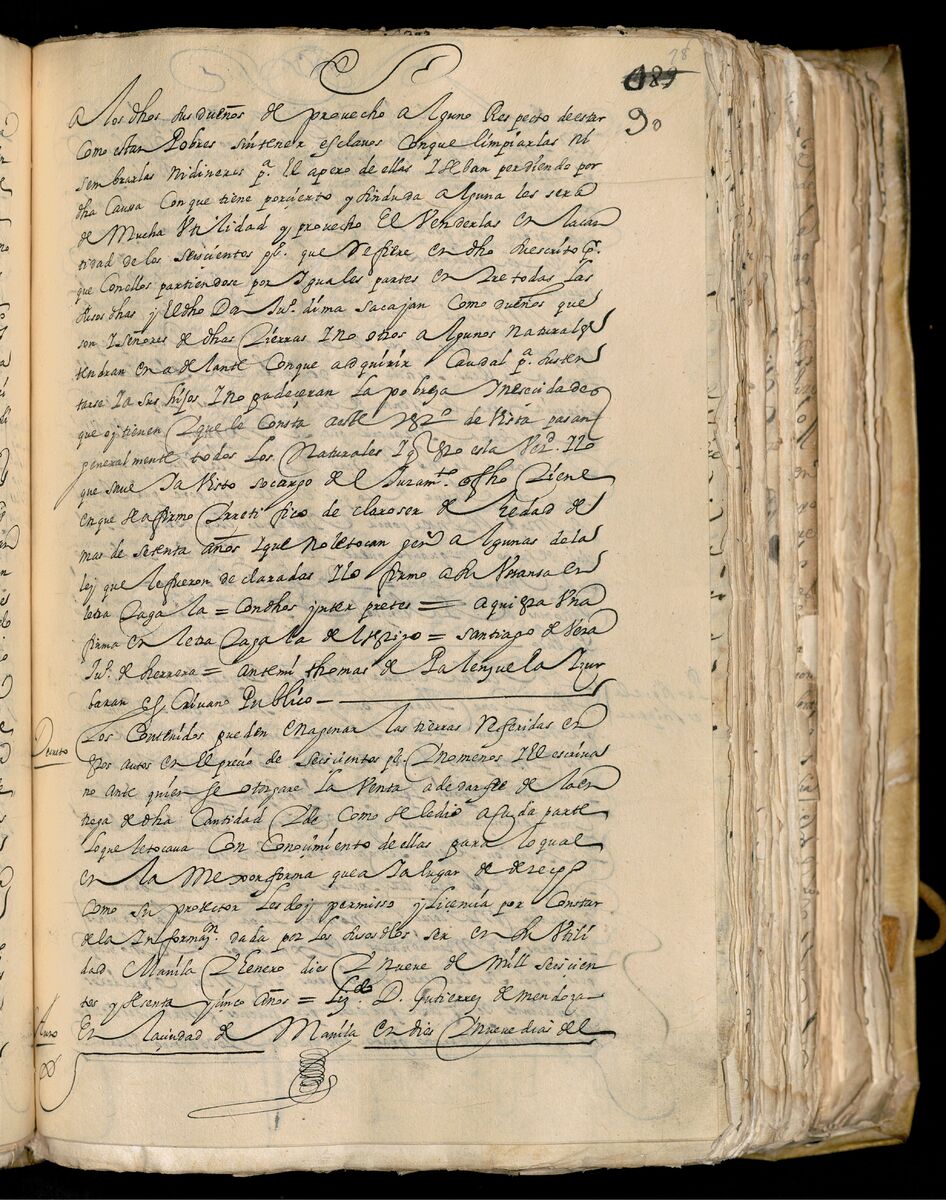 98
189
90
a los dhos sus dueños de provecho alguno Respecto de estar
como estan Pobres sin tener esclavos conque limpiarlas ni
sembrarlas ni dineros pa. El apero de ellas I se ban perdiendo por
dha Caussa Con que tiene por çierto y sin duda alguna les sera
de Mucha Utilidad y provecho El Venderlas en la can
tidad de los seiscientos ps. que Refiere en dho Escrito pr.
que Con ellos partiendose por Iguales partes en tre todas las
susodhas y El dho Dn Ju.o dima sacajan Como dueños que
son I Señores de dhas Tierras I no otros algunos naturales
tendran en adelante Conque adquirir Caudal pa. susten
tarse I a sus hijos I no padeceran la pobreza I nescesidad
que oy tienen Y que le Consta a este tgo de Vista pasan
generalmente todos los Naturales I q esta es la Verd. I lo
que save I a Visto so cargo de el Juramto. fho Tiene
en que se afirmo I rretifico declaro ser de hedad de
mas de setenta años I que no le tocan las generales de la
ley que le fueron declaradas I lo firmo a su Usansa en
letra tagala = con dhos ynterpretes = aqui esta Una
firma en letra tagala del testigo = santiago de Vera
Ju.o de herrera = ante mi thomas de Palenzuela Zur
baran esCrivano Publico
Decreto
Los Contenidos pueden enagenar las tierras Referidas en
estos autos en El preçio de seiscientos ps. I no menos I El escriva
no ante quien se otorgare la Venta a de dar fee de la en
trega de dha Cantidad I de Como se le dio a cada parte
lo que le tocava Con Conoçimiento de ellas para lo qual
en la Mexor forma que a Ia lugar de derecho
Como su protector les doy permisso y Licencia por Constar
de la Informazn. dada por los susodhos ser en su Utili
dad Manila I henero dies I Nueve de Mill seiscien
tos y sesenta y çinco años = Lizdo D. Gutierrez de mendoza
En la çiudad de Manila en dies I nueve dias del